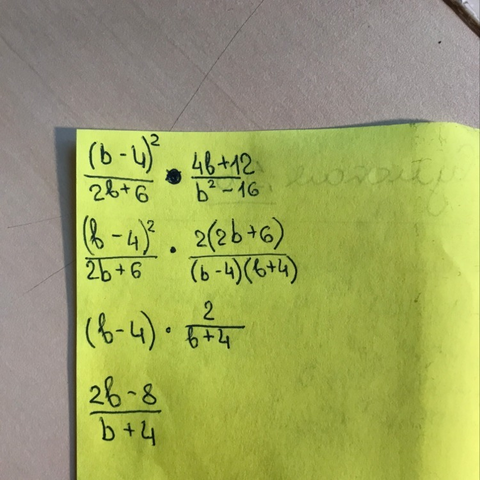 (b-4)²/2b+6 • 4b+12/b²-16
(b-4)²/2b+6 · 2(2b+6)/(b-4)(b+4)
(b-4) · 2/b+4
2b-8/b+4